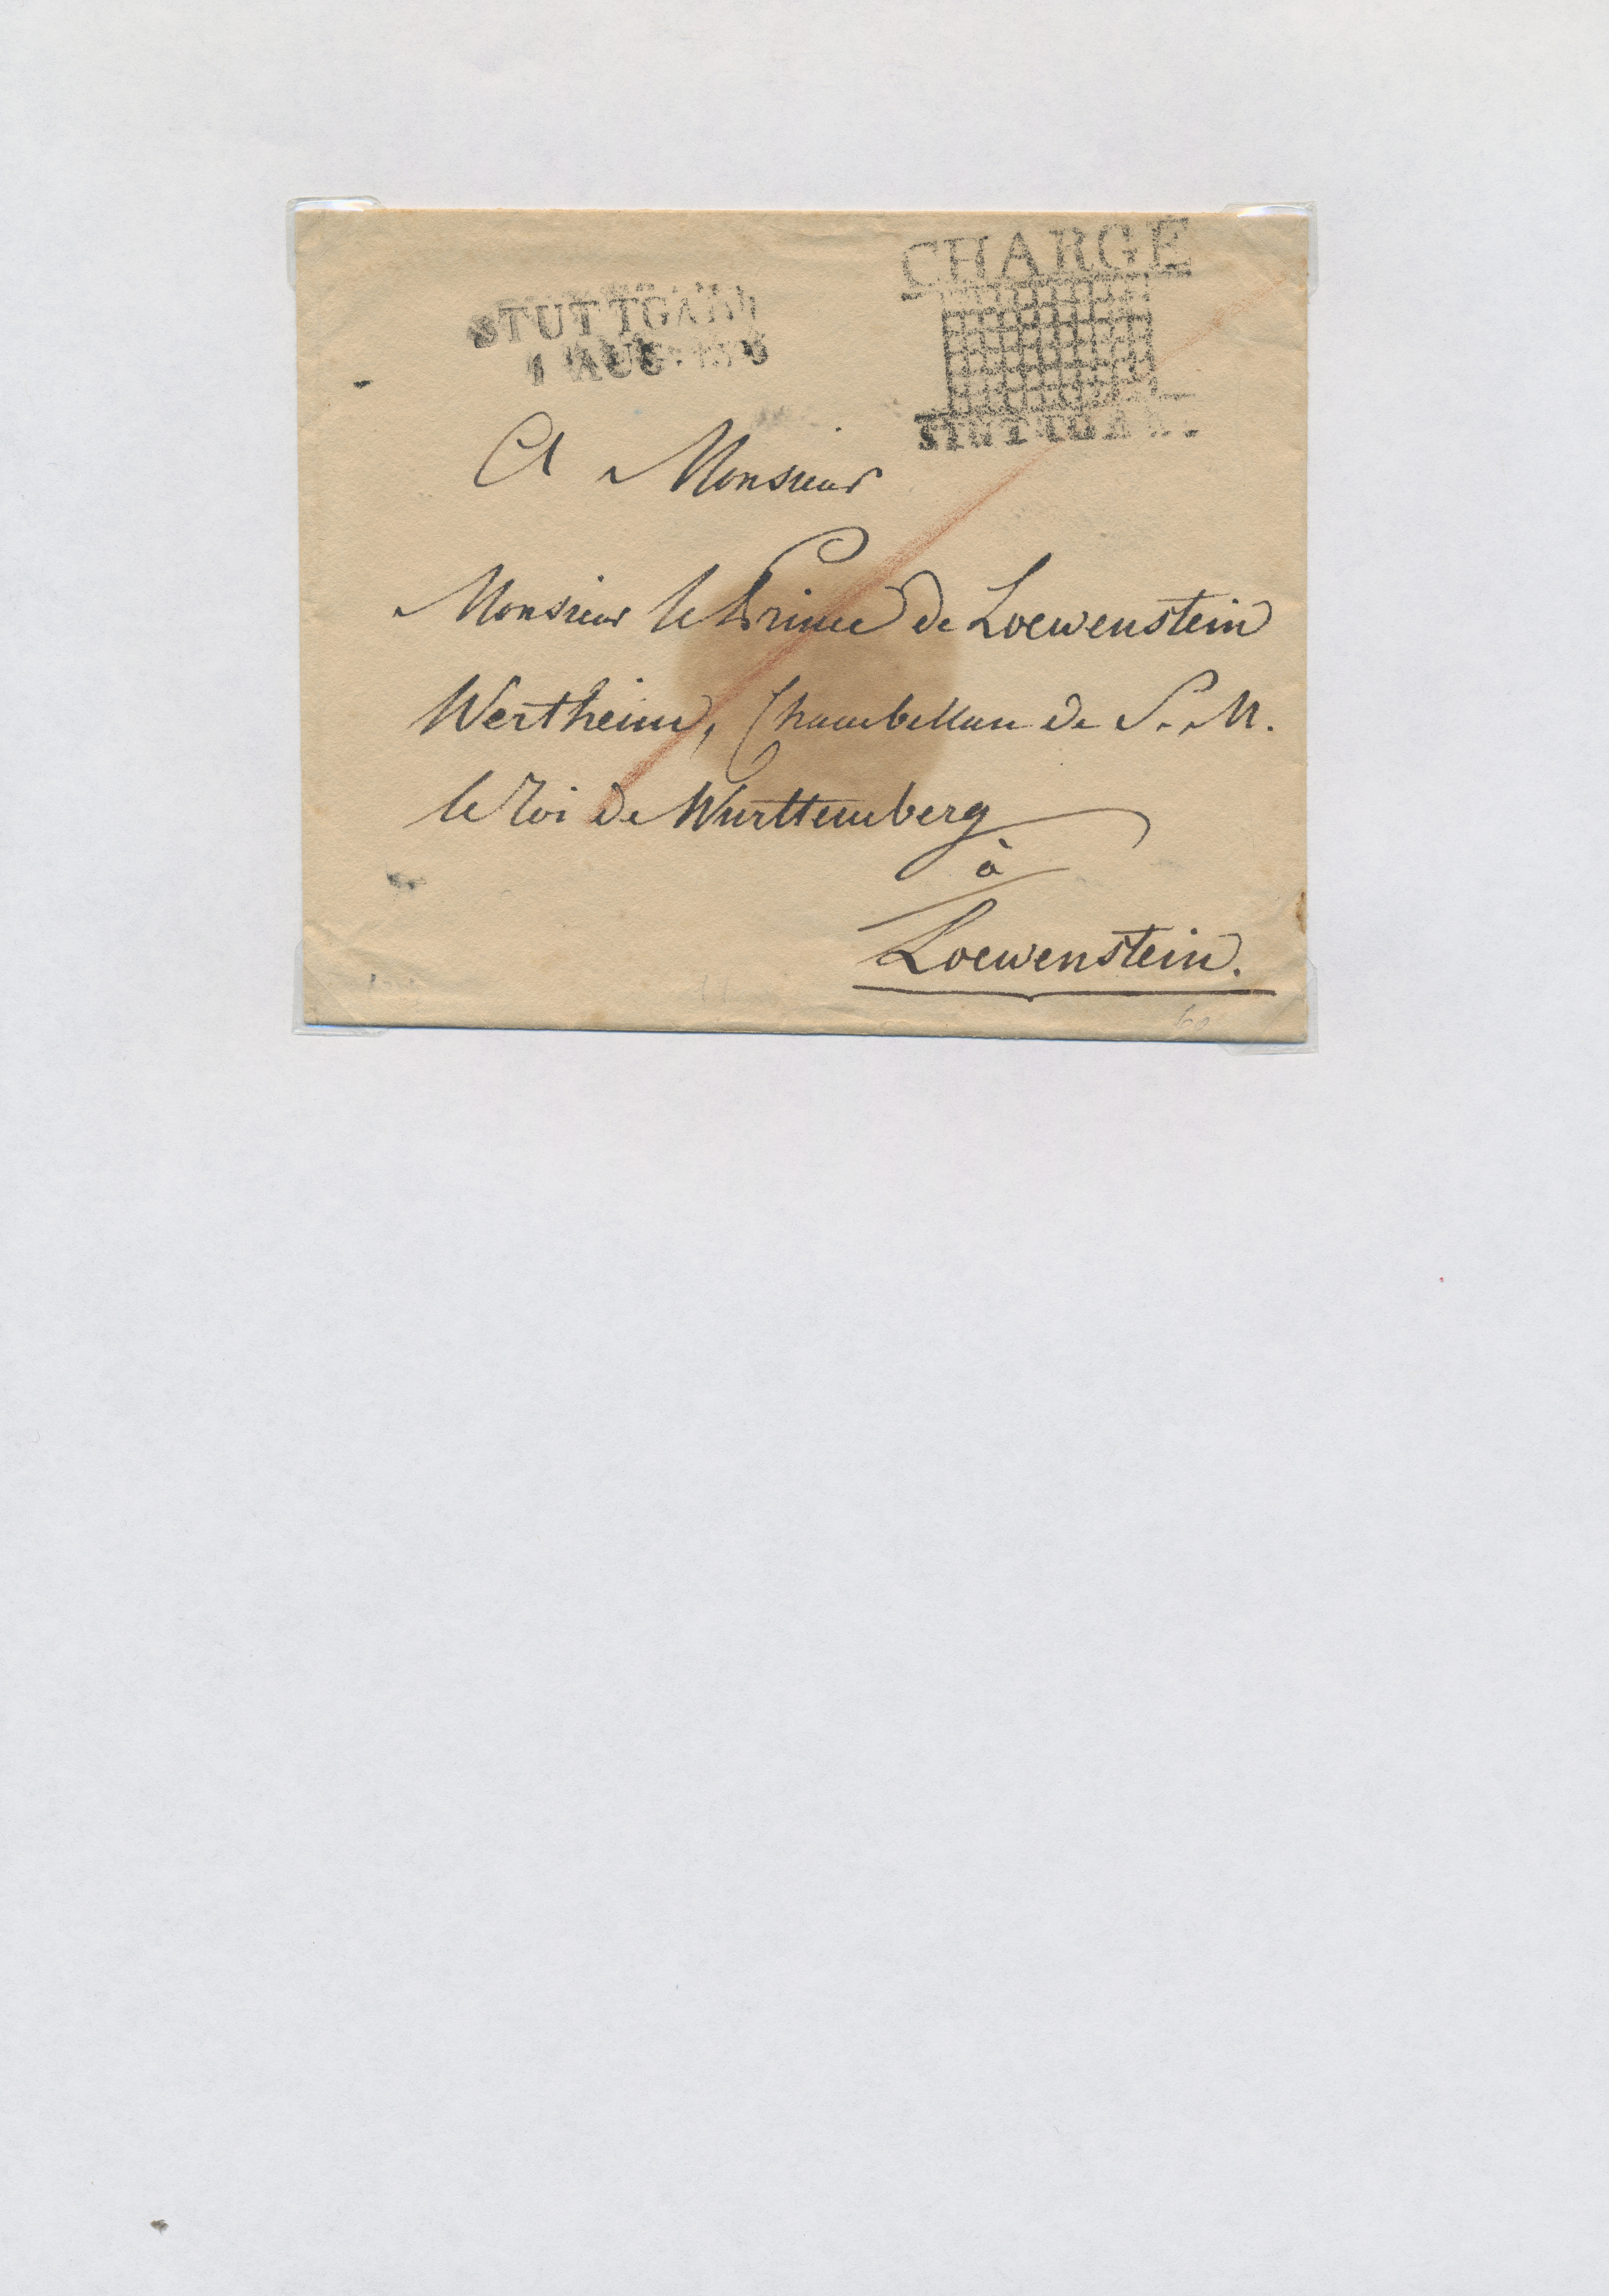 CHARGÉ
STUTTGART
1 AUG
STUTTGART
A Monsieur
Monsieur le Prince de Loewenstein
Wertheim, Chambellan de S. M.
le roi de Wurttemberg
à
Loewenstein.